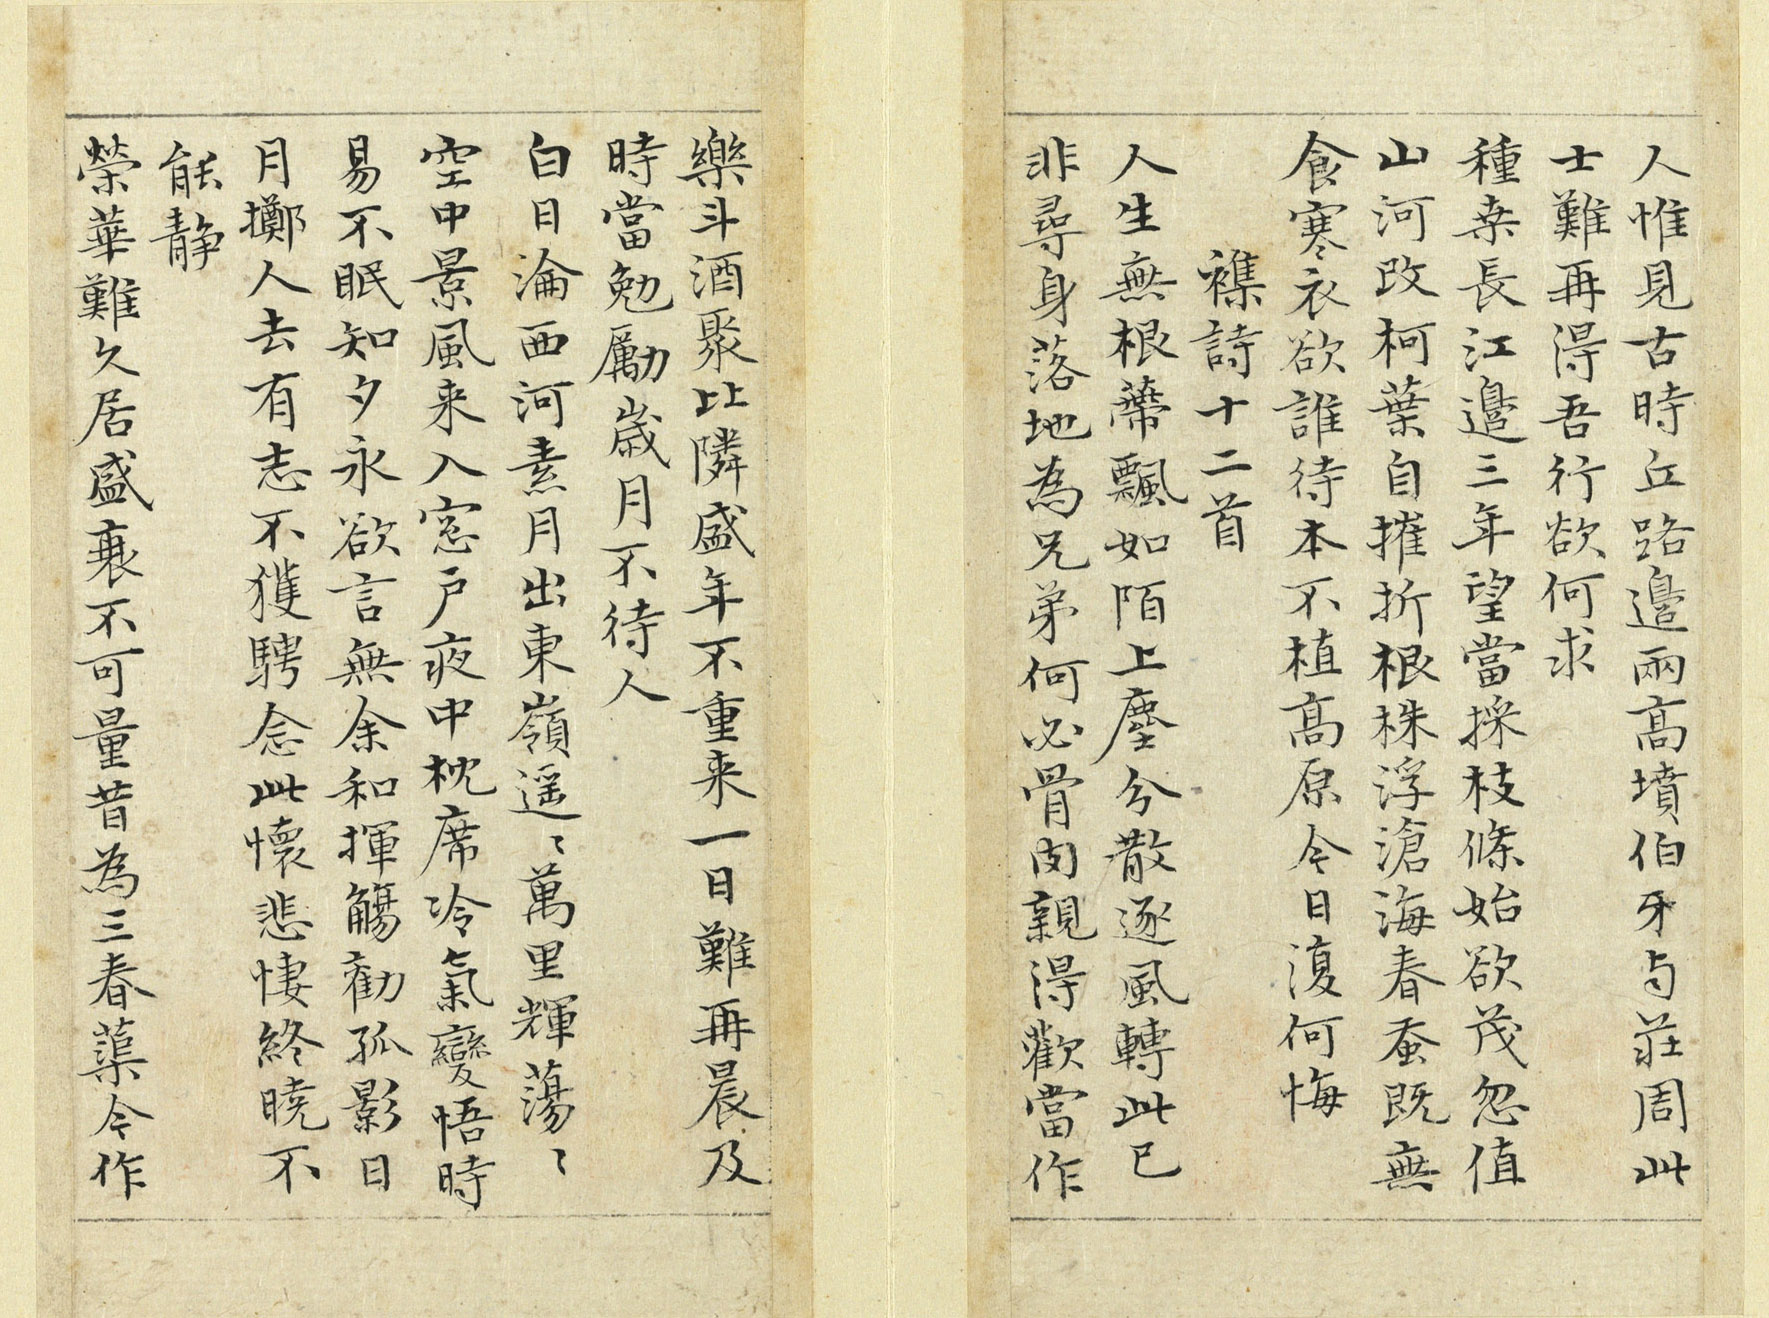 人惟見古時丘路邉兩髙墳伯牙与莊周此
士難再得吾行欲何求
種桒長江邉三年望當採枝條始欲茂忽值
山河改柯葉自摧折根株浮滄海春蚕既無
食寒衣欲誰待本不植髙原今日復何悔
襍詩十二首
人生無根蔕飄如陌上塵分散逐風轉此已
非尋身落地為兄弟何必骨肉親得歡當作
樂斗酒聚比隣盛年不重来一日難再晨及
時當勉勵歳月不待人
白日淪西河素月出東嶺遥〻萬里輝蕩〻
空中景風来入窓戸夜中枕席冷氣變悟時
易不眠知夕永欲言無余和揮觴勸孤影日
月擲人去有志不獲騁念此懷悲悽終曉不
能静
榮華難久居盛衰不可量昔為三春蕖今作